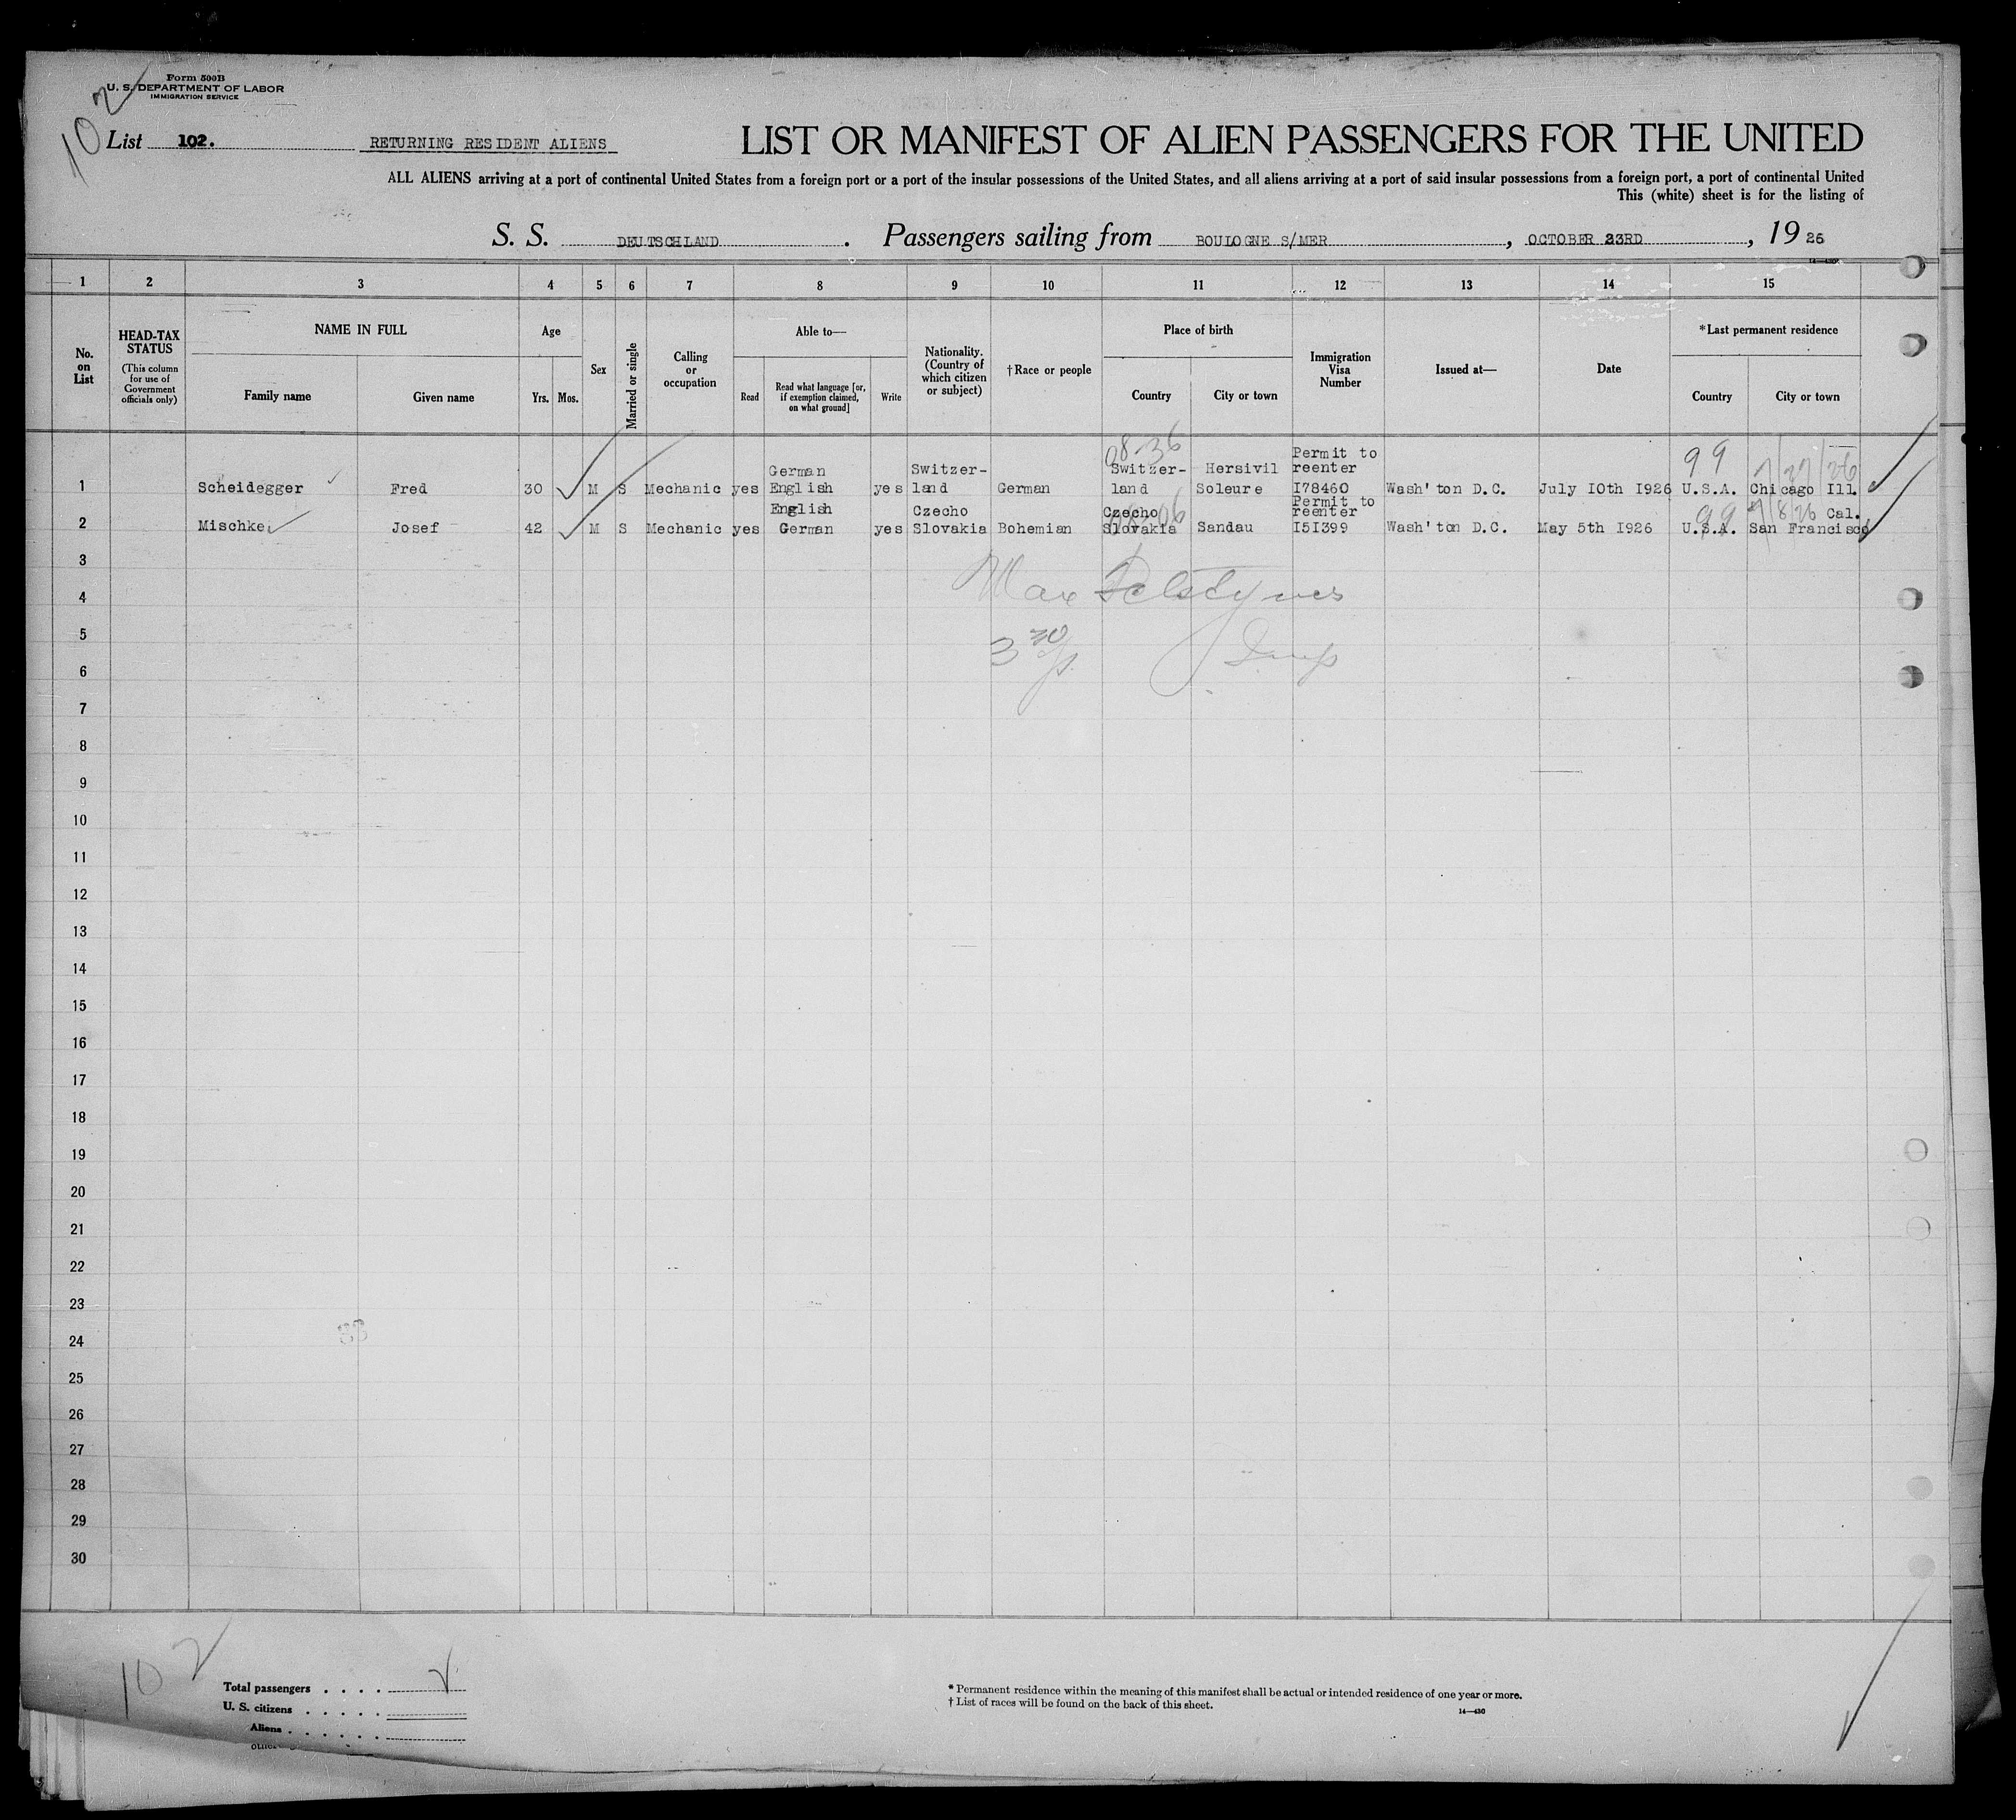 Form 500B
U. S. DEPARTMENT OF LABOR
IMMIGRATION SERVICE
102
List 102. RETURNING RESIDENT ALIENS
LIST OR MANIFEST OF ALIEN PASSENGERS FOR THE UNITED
ALL ALIENS arriving at a port of continental United States from a foreign port or a port of the insular possessions of the United States, and all aliens arriving at a port of said insular possessions from a foreign port, a port of continental United
This (white) sheet is for the listing of
S. S. DEUTSCHLAND . Passengers sailing from BOULOGNE S/MER , OCTOBER 23RD , 19 26
1 2 3 4 5 6 7 8 9 10 11 12 13 14 15
No. on List
HEAD-TAX STATUS (This column for use of Government officials only)
NAME IN FULL
Family name Given name
Age
Yrs. Mos.
Sex
Married or single
Calling or occupation
Able to—
Read
Read what language [or, if exemption claimed, on what ground]
Write
Nationality. (Country of which citizen or subject)
†Race or people
Place of birth
Country City or town
Immigration Visa Number
Issued at—
Date
*Last permanent residence
Country City or town
08-36 99 7/27/26
1 Scheidegger Fred 30 M S Mechanic yes German English yes Switzer-land German Switzer-land Hersivil Soleure Permit to reenter I78460 Wash'ton D.C. July IOth I926 U.S.A. Chicago Ill.
99 7/8/26
2 Mischke Josef 42 M S Mechanic yes English German yes Czecho Slovakia Bohemian Czecho Slovakia Sandau Permit to reenter I5I399 Wash'ton D.C. May 5th I926 U.S.A. San Francisco Cal.
3
4 Max
5
6
7
8
9
10
11
12
13
14
15
16
17
18
19
20
21
22
23
24
25
26
27
28
29
30
102
Total passengers
U. S. citizens
Aliens
* Permanent residence within the meaning of this manifest shall be actual or intended residence of one year or more.
† List of races will be found on the back of this sheet.
14—430